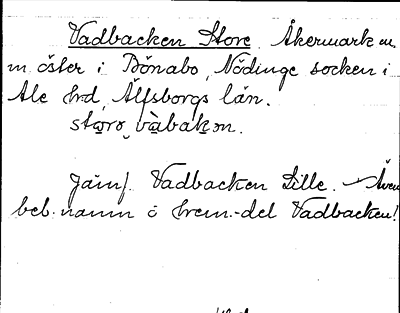 Vadbacken Store. Åkermark m.
m. öster i Bönabo, Nödinge socken i
Ale hrd, Älfsborgs län.
stọrọ vàbakọn.
Jämf. Vadbacken Lille. – Även
beb. namn å hem.-del Vadbacken!